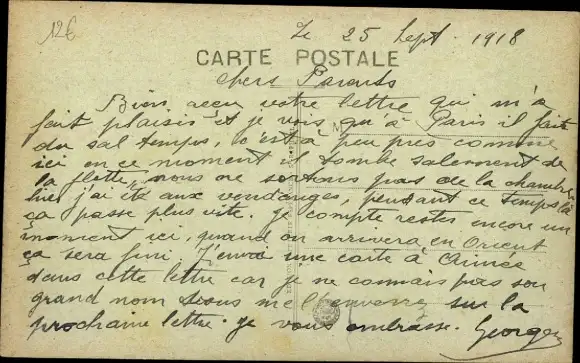 12€
Le 25 Sept. 1918
CARTE POSTALE
Chers Parents
Bien reçu votre lettre qui m'a
fait plaisir et je vois qu'à Paris il fait
du sal temps, c'est à peu près comme
ici en ce moment il tombe salement de
la flotte, nous ne sortons pas de la chambre
hier j'ai été aux vendanges, pendant ce temps là
ça passe plus vite. je compte rester encore un
moment ici, quand on arrivera en Orient
ça sera fini. J'envoi une carte à Aimée
dans cette lettre car je ne connais pas son
grand nom vous me l'enverrez sur la
prochaine lettre. je vous embrasse. Georges